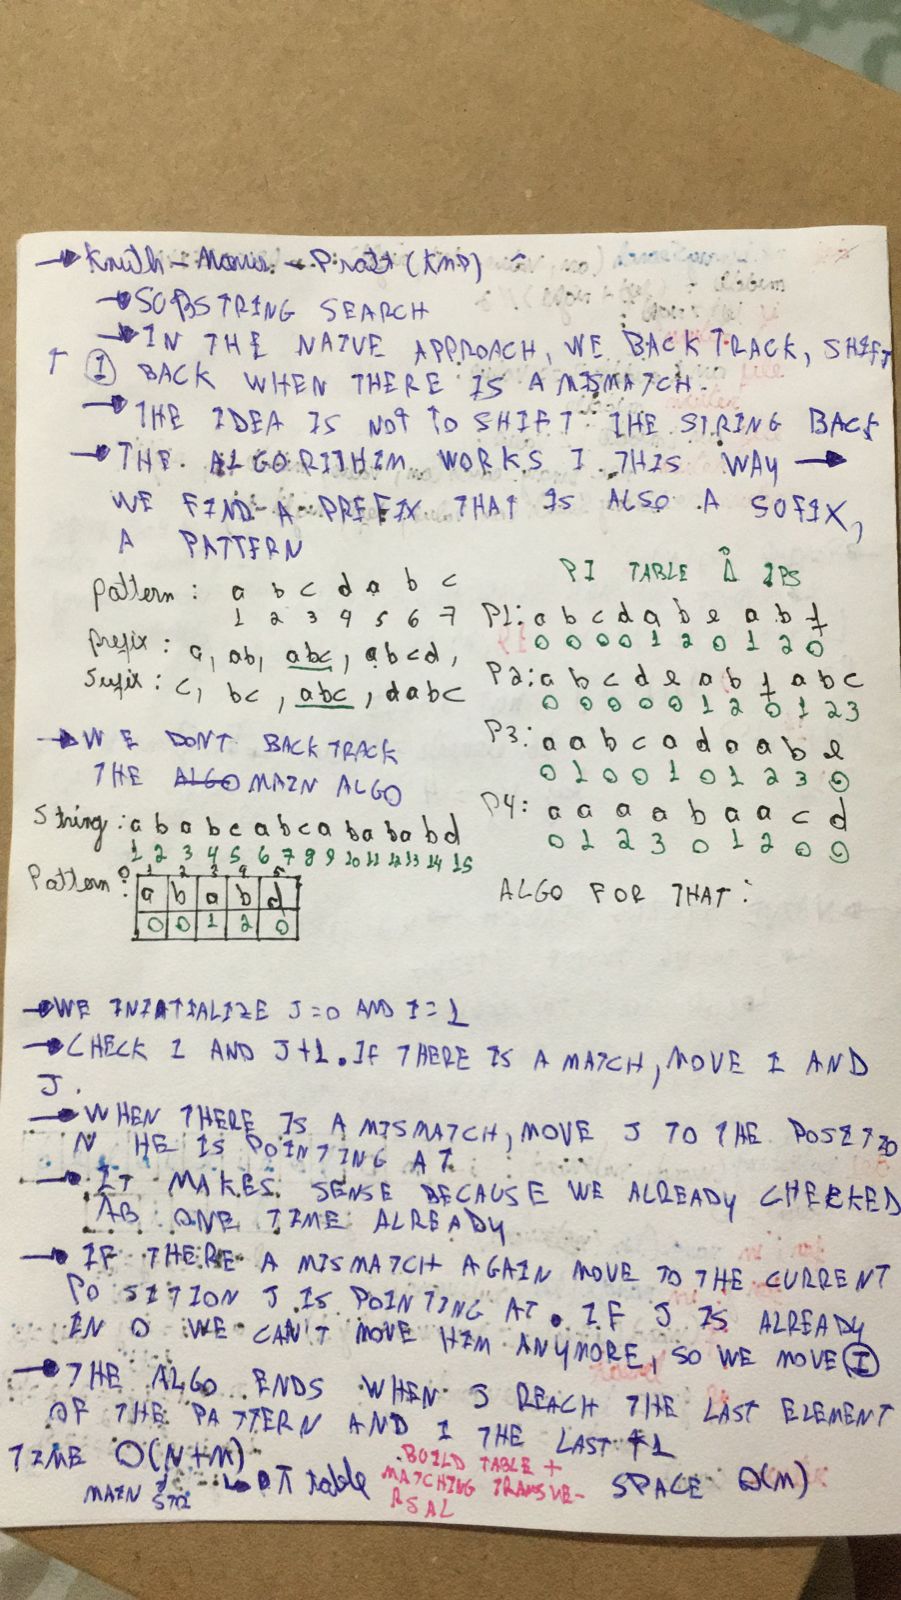 → Knuth-Morris-Pratt (KMP)
→ SUBSTRING SEARCH
→ IN THE NAIVE APPROACH, WE BACKTRACK, SHIFT
I BACK WHEN THERE IS A MISMATCH.
→ THE IDEA IS NOT TO SHIFT THE STRING BACK
→ THE ALGORITHIM WORKS I THIS WAY →
WE FIND A PREFIX THAT IS ALSO A SOFIX,
A PATTERN
Pattern: a b c d a b c
1 2 3 4 5 6 7
Prefix: a, ab, abc, abcd,
Sufix: c, bc, abc, dabc
→ WE DONT BACKTRACK
THE ALGO MAIN ALGO
String: a b a b c a b c a b a b a b d
1 2 3 4 5 6 7 8 9 10 11 12 13 14 15
0 1 2 3 4 5
Pattern: a b a b d
0 0 1 2 0
PI TABLE LPS
P1: a b c d a b e a b f
0 0 0 0 1 2 0 1 2 0
P2: a b c d e a b f a b c
0 0 0 0 0 1 2 0 1 2 3
P3: a a b c a d a a b e
0 1 0 0 1 0 1 2 3 0
P4: a a a a b a a c d
0 1 2 3 0 1 2 0 0
ALGO FOR THAT:
→ WE INIATIALIZE J=0 AND I=1
→ CHECK I AND J+1. IF THERE IS A MATCH, MOVE I AND
J.
→ WHEN THERE IS A MISMATCH, MOVE J TO THE POSITIO
N HE IS POINTING AT
→ IT MAKES SENSE BECAUSE WE ALREADY CHECKED
AB ONE TIME ALREADY
→ IF THERE A MISMATCH AGAIN MOVE TO THE CURRENT
POSITION J IS POINTING AT. IF J IS ALREADY
IN 0 WE CAN'T MOVE HIM ANYMORE, SO WE MOVE I
→ THE ALGO ENDS WHEN J REACH THE LAST ELEMENT
OF THE PATTERN AND I THE LAST +1
TIME O(N+M)
MAIN STR
↳ π table
BUILD TABLE +
MATCHING TRANSVE-
RSAL
SPACE O(M)